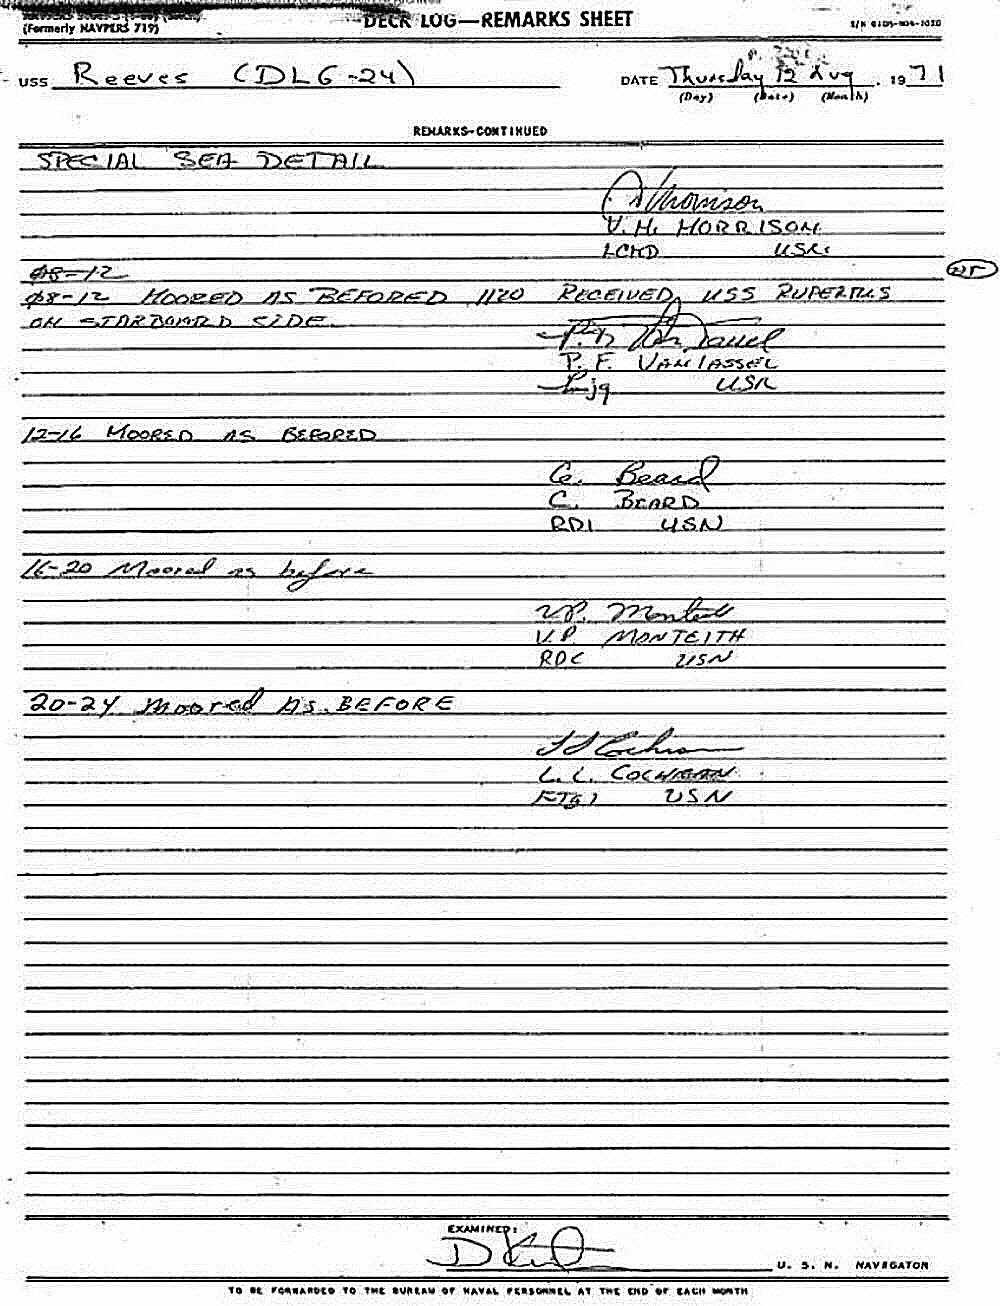 DECK LOG—REMARKS SHEET
(Formerly NAVPERS 719)
USS Reeves (DLG-24)
DATE Thursday 12 Aug 1971
(Day) (Date) (Month)
REMARKS-CONTINUED
SPECIAL SEA DETAIL
V. H. MORRISON
LCMD USN
08-12
08-12 MOORED AS BEFORED 1120 RECEIVED USS RUPERTUS
ON STARBOARD SIDE
P. F. VANTASSEL
Ltjg USN
12-16 MOORED AS BEFORED
C. Beard
C. BEARD
RD1 USN
16-20 Moored as before
V.P. Monteith
V.P. MONTEITH
RDC USN
20-24 Moored AS BEFORE
L L Cochran
L. L. COCHRAN
FTG1 USN
EXAMINED:
U. S. N. NAVIGATOR
TO BE FORWARDED TO THE BUREAU OF NAVAL PERSONNEL AT THE END OF EACH MONTH